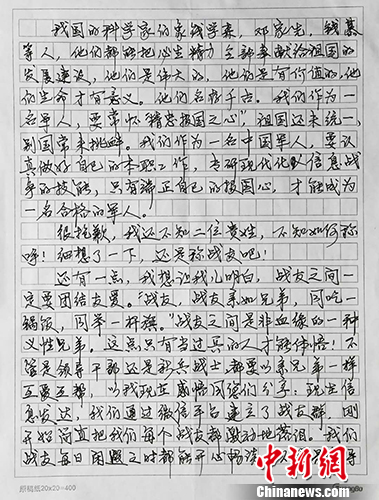 我国的科学家们象钱学森,邓家先,钱基
等人,他们都能把必生精力全部奉献给祖国的
发展建设,他们是伟大的,他们是有价值的,他
们的生命才有意义。他们名传千古。我们作为一
名军人,要常怀"精忠报国之心"祖国还未统一,
别国常来挑衅。我们作为一名中国军人,要认
真做好自己的本职工作,专研现代化信息战
争的技能,只有端正自己的报国心,才能成为
一名合格的军人。
很抱歉,我还不知二位贵姓,不知如何称
呼!细想了一下,还是称战友吧!
还有一点,我想让我儿明白,战友之间一
定要团结友爱。"战友,战友亲如兄弟,同吃一
锅饭,同举一杆旗。"战友之间是非血缘的一种
义性兄弟。这点只有当过兵的人才能体悟!不
管是领导干部还是称兵战士都要如亲兄弟一样
互爱互帮,以我现在感悟同您们分享:现在信
息发达,我们通过微信平台建立了战友群,刚
开始简直把我们每个战友都激动地落泪。我们
战友每日闲暇之时都能开心畅
原稿纸20×20=400
中新网